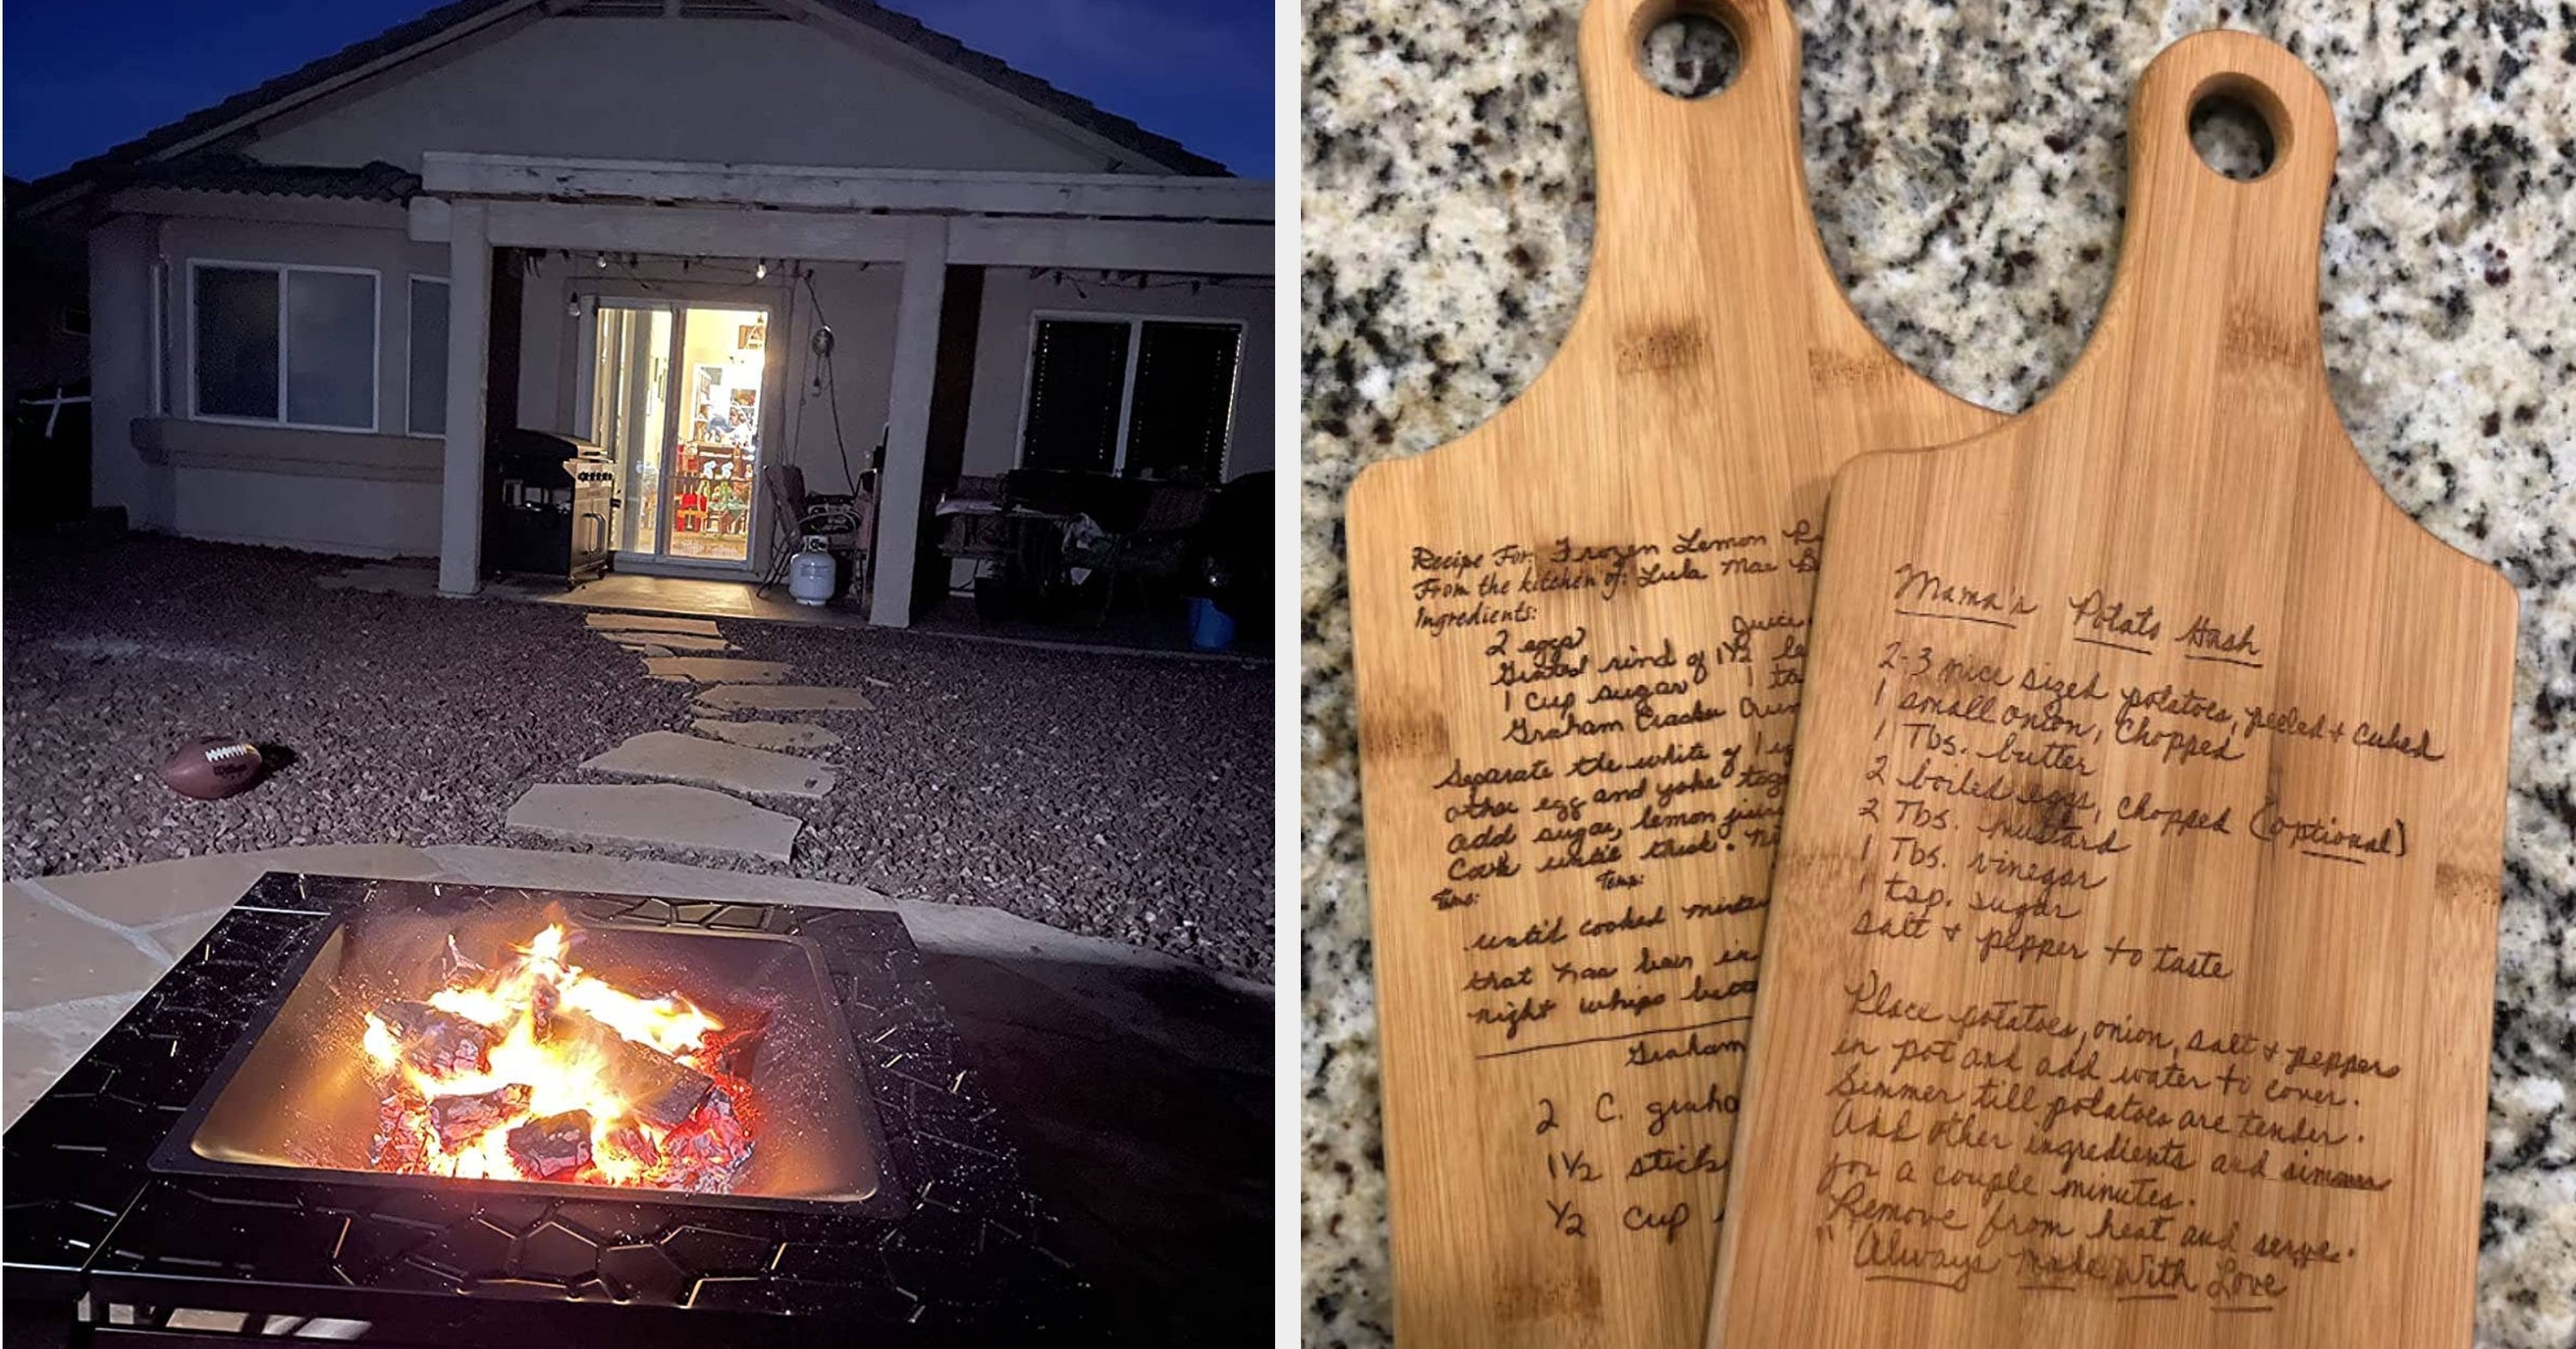 Wilson
Recipe For: Frozen Lemon
From the kitchen of: Lula Mae
Ingredients:
2 eggs Juice
Grated rind of 1½ le
1 cup sugar 1 ta
Graham Cracker Crum
Separate the white of 1 eg
other egg and yoke tog
add sugar, lemon juice
Cook until thick.
Time: Temp:
until cooked mixtu
that has been in
night whips bette
Graham
2 C. graha
1½ stick
½ cup
Mama's Potato Hash
2-3 nice sized potatoes, peeled + cubed
1 small onion, Chopped
1 Tbs. butter
2 boiled eggs, chopped (optional)
2 Tbs. mustard
1 Tbs. vinegar
1 tsp. sugar
salt + pepper to taste
Place potatoes, onion, salt + pepper
in pot and add water to cover.
Simmer till potatoes are tender.
Add other ingredients and simmer
for a couple minutes.
Remove from heat and serve.
"Always Made With Love